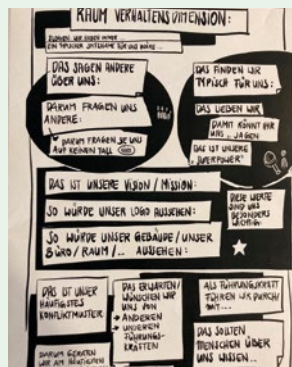 RAUM VERHALTENSDIMENSION:
EIN TYPISCHER SATZ
DAS SAGEN ANDERE
ÜBER UNS:
DARUM FRAGEN UNS
ANDERE:
DARUM FRAGEN SIE UNS
AUF KEINEN FALL
DAS FINDEN WIR
TYPISCH FÜR UNS:
DAS LIEBEN WIR
DAMIT KÖNNT IHR
UNS JAGEN
DAS IST UNSERE
"SUPERPOWER"
DAS IST UNSERE VISION / MISSION:
SO WÜRDE UNSER LOGO AUSSEHEN:
SO WÜRDE UNSER GEBÄUDE / UNSER
BÜRO / RAUM / .. AUSSEHEN:
DIESE WERTE
SIND UNS
BESONDERS
WICHTIG:
DAS IST UNSER
HÄUFIGSTES
KONFLIKTMUSTER
DARUM GERATEN
WIR AM HÄUFIGSTEN
DAS ERWARTEN/
WÜNSCHEN WIR
UNS VON
→ ANDEREN
→ UNSEREN
FÜHRUNGS-
KRÄFTEN
ALS FÜHRUNGSKRAFT
FÜHREN WIR DURCH/
MIT...
DAS SOLLTEN
MENSCHEN ÜBER
UNS WISSEN...